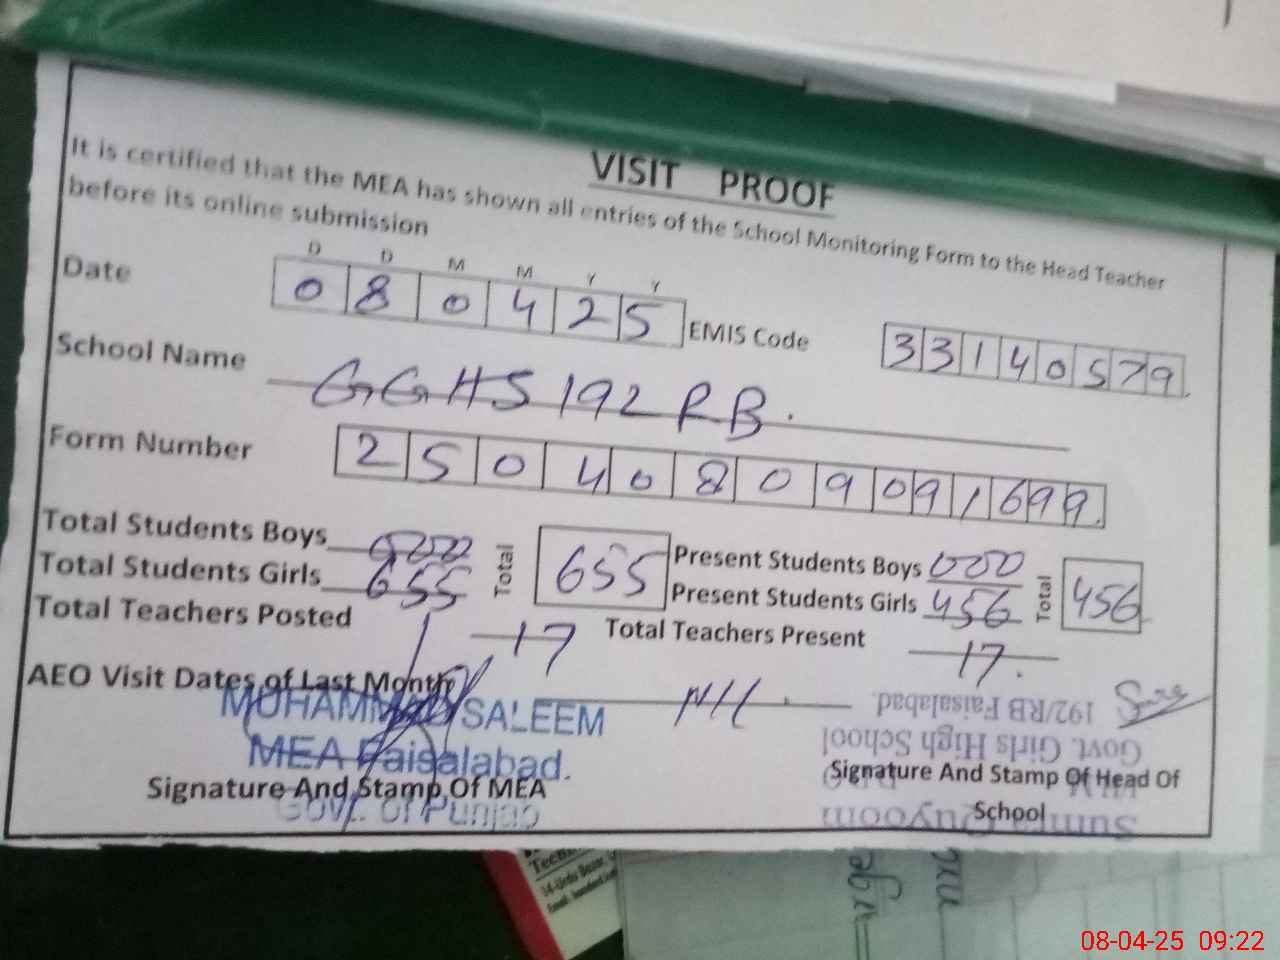 VISIT PROOF
It is certified that the MEA has shown all entries of the School Monitoring Form to the Head Teacher
before its online submission
D D M M Y Y
Date 0 8 0 4 2 5 EMIS Code 3 3 1 4 0 5 7 9
School Name GGHS 192 RB.
Form Number 2 5 0 4 0 8 0 9 0 9 1 6 9 9
Total Students Boys 000 Total 655 Present Students Boys 000 Total 456
Total Students Girls 655 Present Students Girls 456
Total Teachers Posted 17 Total Teachers Present 17.
AEO Visit Dates of Last Month Nil
MUHAMMAD SALEEM
MEA Faisalabad.
Govt. of Punjab
Signature And Stamp Of MEA
Signature And Stamp Of Head Of
School
Govt. Girls High School
192/RB Faisalabad.
08-04-25 09:22